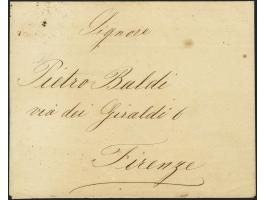 Signore
Pietro Baldi
via dei Giraldi 6
Firenze